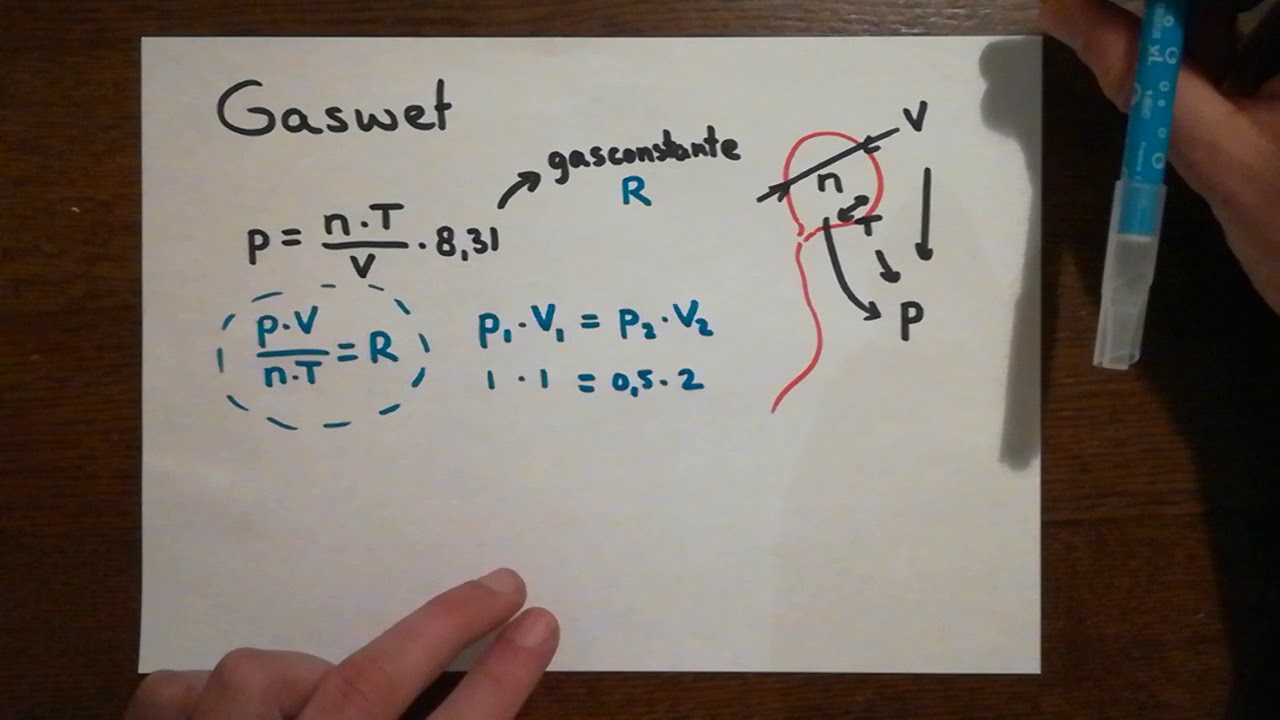 Gaswet
gasconstante
R
p = n·T / V · 8,31
p·V / n·T = R
p₁·V₁ = p₂·V₂
1 · 1 = 0,5·2
V
n
T
p